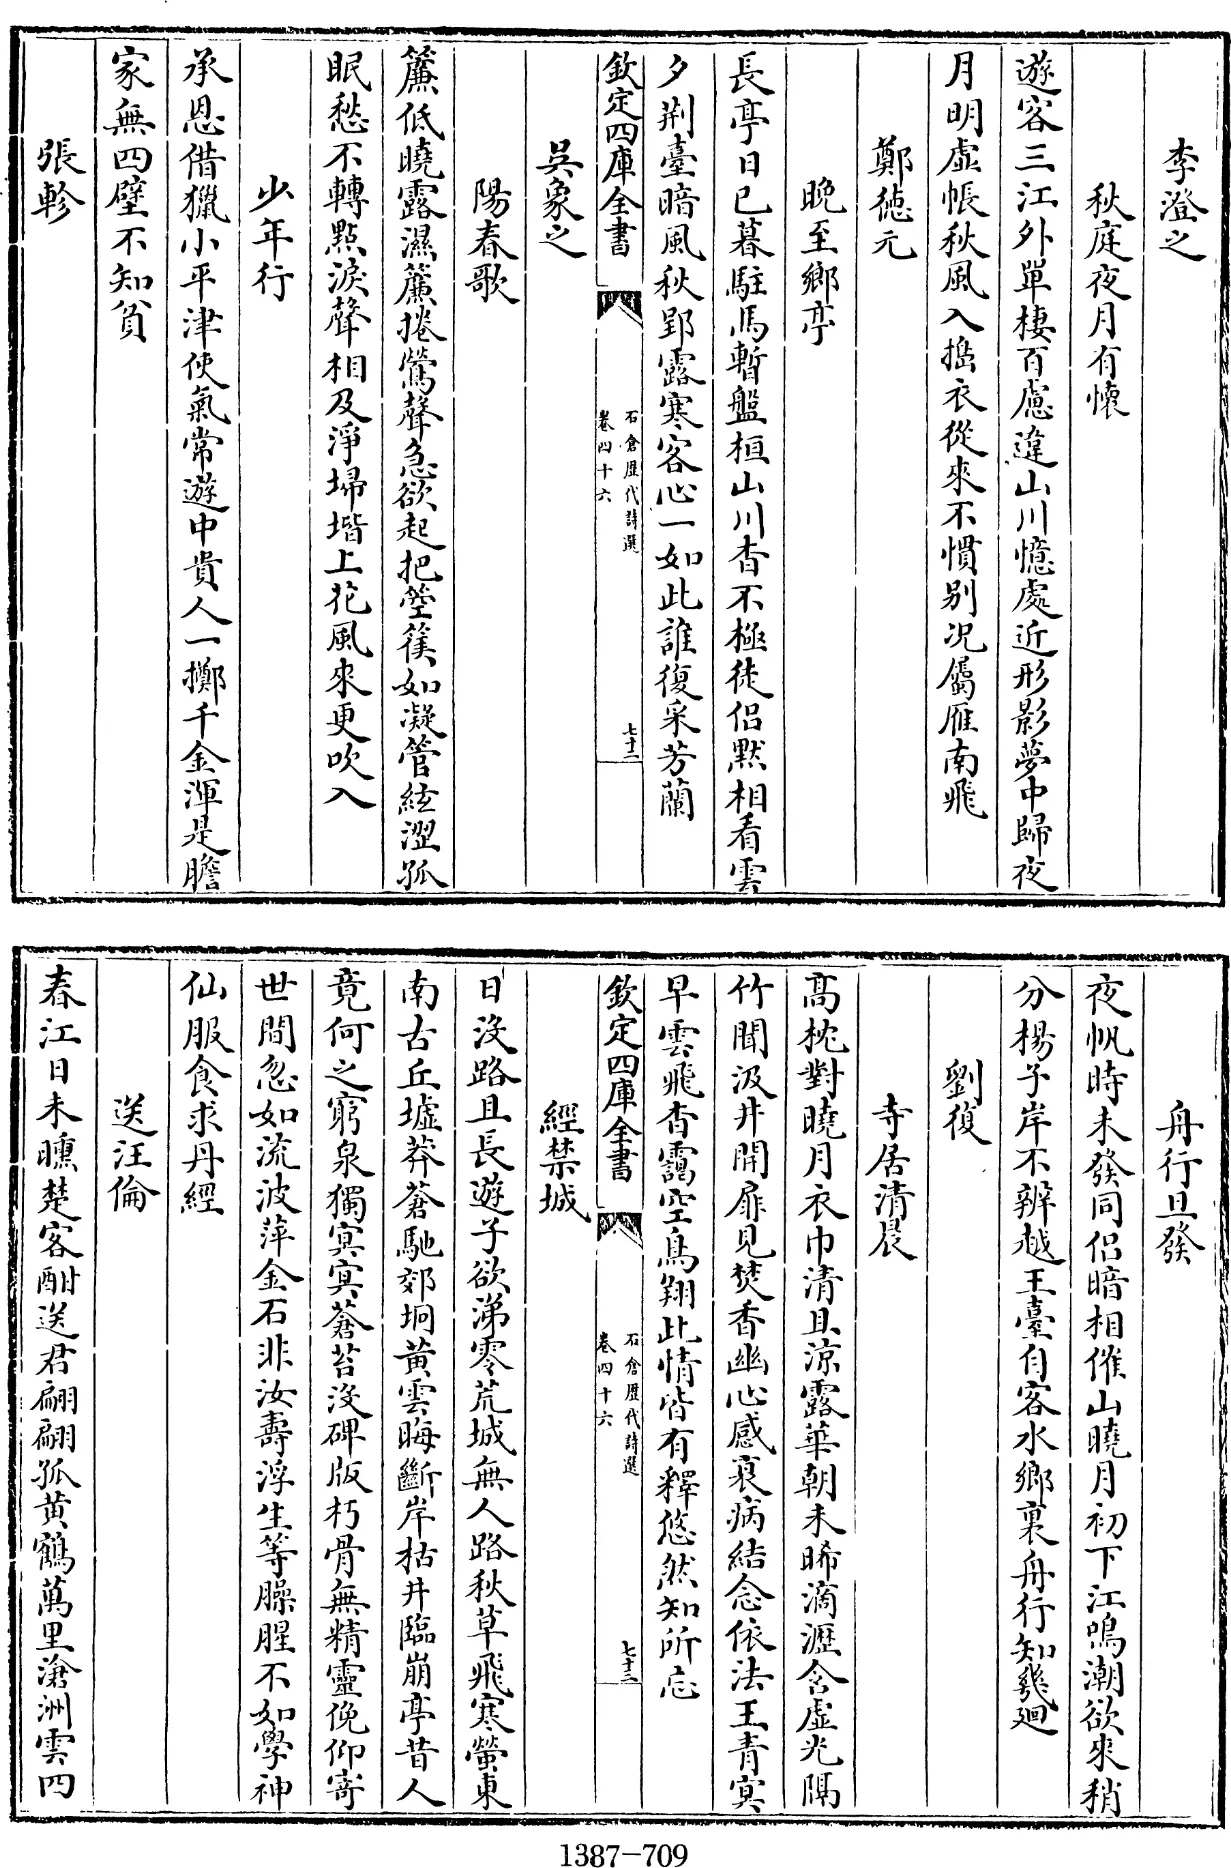 李澄之
秋庭夜月有懷
遊客三江外單棲百慮違山川憶處近形影夢中歸夜
月明虛帳秋風入搗衣從來不慣别况屬雁南飛
鄭徳元
晚至鄉亭
長亭日已暮駐馬暫盤桓山川杳不極徒侣黙相看雲
夕荆臺暗風秋郢露寒客心一如此誰復采芳蘭
欽定四庫全書
石倉歴代詩選
卷四十六
七十二
吳象之
陽春歌
簾低曉露濕簾捲鶯聲急欲起把箜篌如凝管絃澀孤
眠愁不轉㸃淚聲相及淨埽堦上花風來更吹入
少年行
承恩借獵小平津使氣常遊中貴人一擲千金渾是膽
家無四壁不知貧
張軫
舟行旦發
夜帆時未發同侣暗相催山曉月初下江鳴潮欲來稍
分楊子岸不辨越王臺自客水鄉裏舟行知幾廻
劉復
寺居清晨
髙枕對曉月衣巾清且涼露華朝未晞滴瀝含虛光隔
竹聞汲井開扉見焚香幽心感衰病結念依法王青冥
早雲飛杳靄空鳥翔此情皆有釋悠然知所忘
欽定四庫全書
石倉歴代詩選
卷四十六
七十三
經禁城
日没路且長遊子欲涕零荒城無人路秋草飛寒螢東
南古丘墟莽蒼馳郊坰黄雲晦斷岸枯井臨崩亭昔人
竟何之窮泉獨冥冥蒼苔没碑版朽骨無精靈俛仰寄
世間忽如流波萍金石非汝壽浮生等臊腥不如學神
仙服食求丹經
送汪倫
春江日未曛楚客酣送君翩翩孤黄鶴萬里滄洲雲四
1387-709